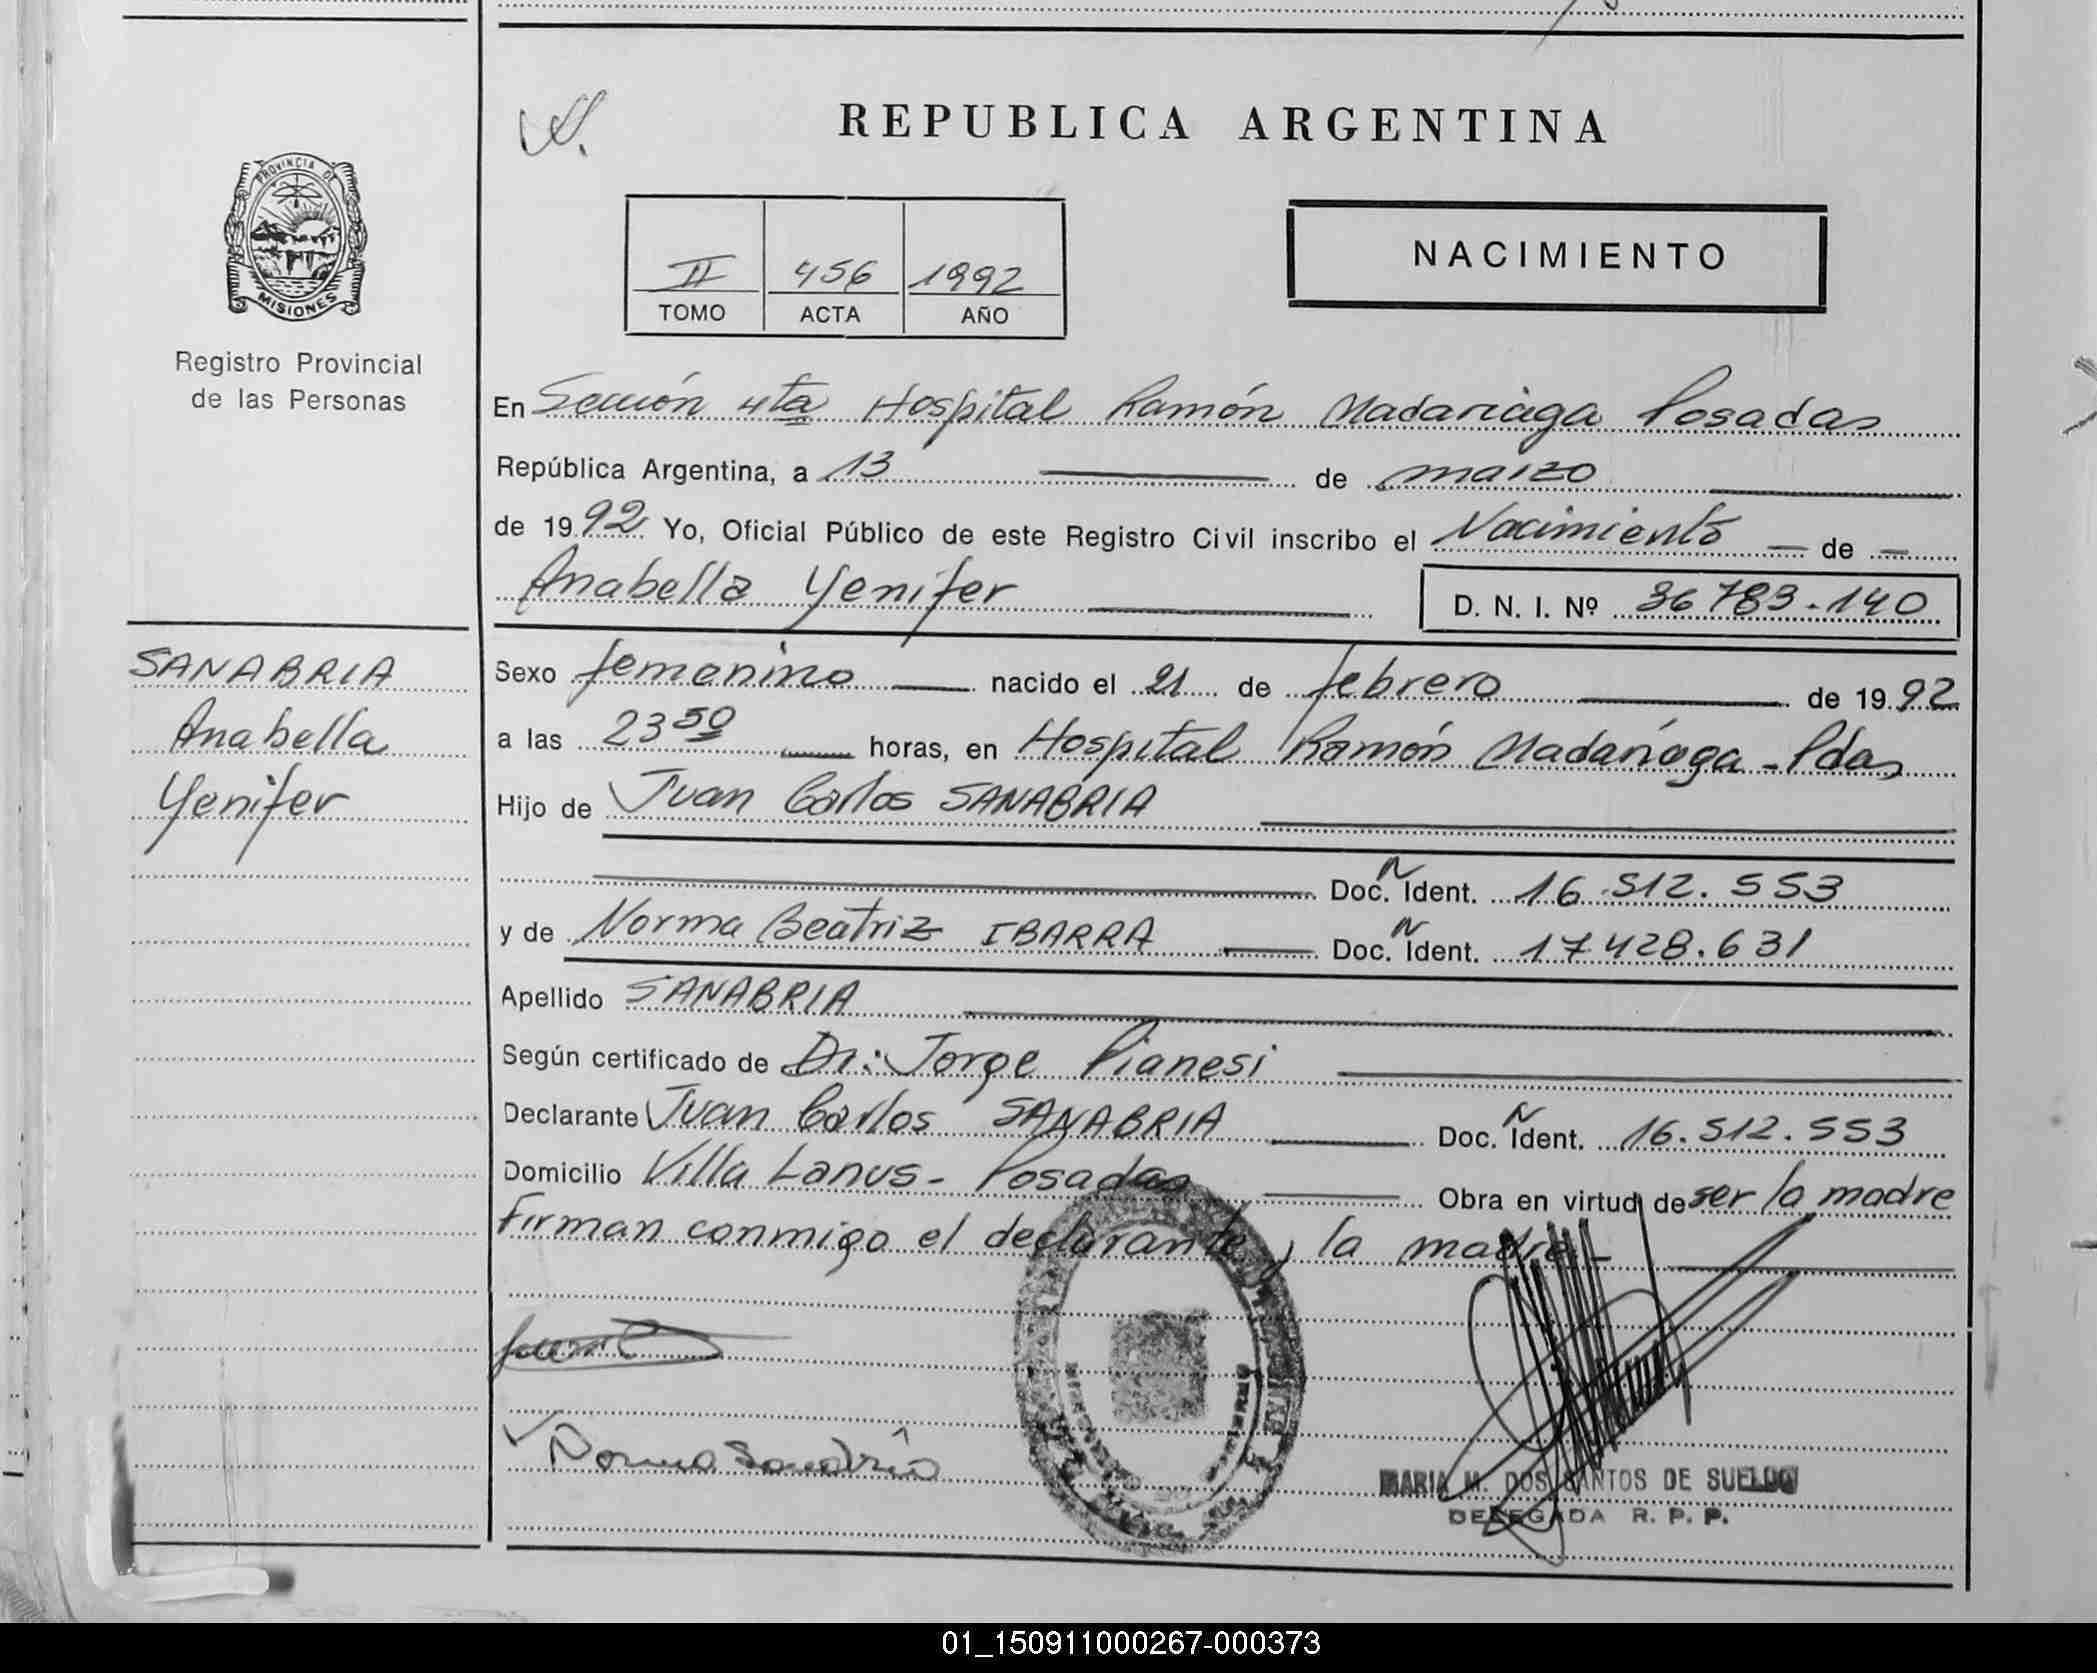 REPUBLICA ARGENTINA
PROVINCIA DE
MISIONES
Registro Provincial
de las Personas
II 456 1992
TOMO ACTA AÑO
NACIMIENTO
En Sección 4ta Hospital Ramón Madariaga Posadas
República Argentina, a 13 de marzo
de 1992 Yo, Oficial Público de este Registro Civil inscribo el Nacimiento — de —
Anabella Yenifer D. N. I. Nº 36783.140
SANABRIA
Anabella
Yenifer
Sexo femenino nacido el 21 de febrero de 1992
a las 23 50 horas, en Hospital Ramón Madariaga - Pdas
Hijo de Juan Carlos SANABRIA
Doc. N Ident. 16.512.553
y de Norma Beatriz IBARRA Doc. N Ident. 17428.631
Apellido SANABRIA
Según certificado de Dr.: Jorge Pianesi
Declarante Juan Carlos SANABRIA Doc. N Ident. 16.512.553
Domicilio Villa Lanus - Posadas Obra en virtud de ser la madre
Firman conmigo el declarante y la madre.-
Norma Sanabria
MARIA M. DOS SANTOS DE SUELDO
DELEGADA R. P. P.
01_150911000267-000373